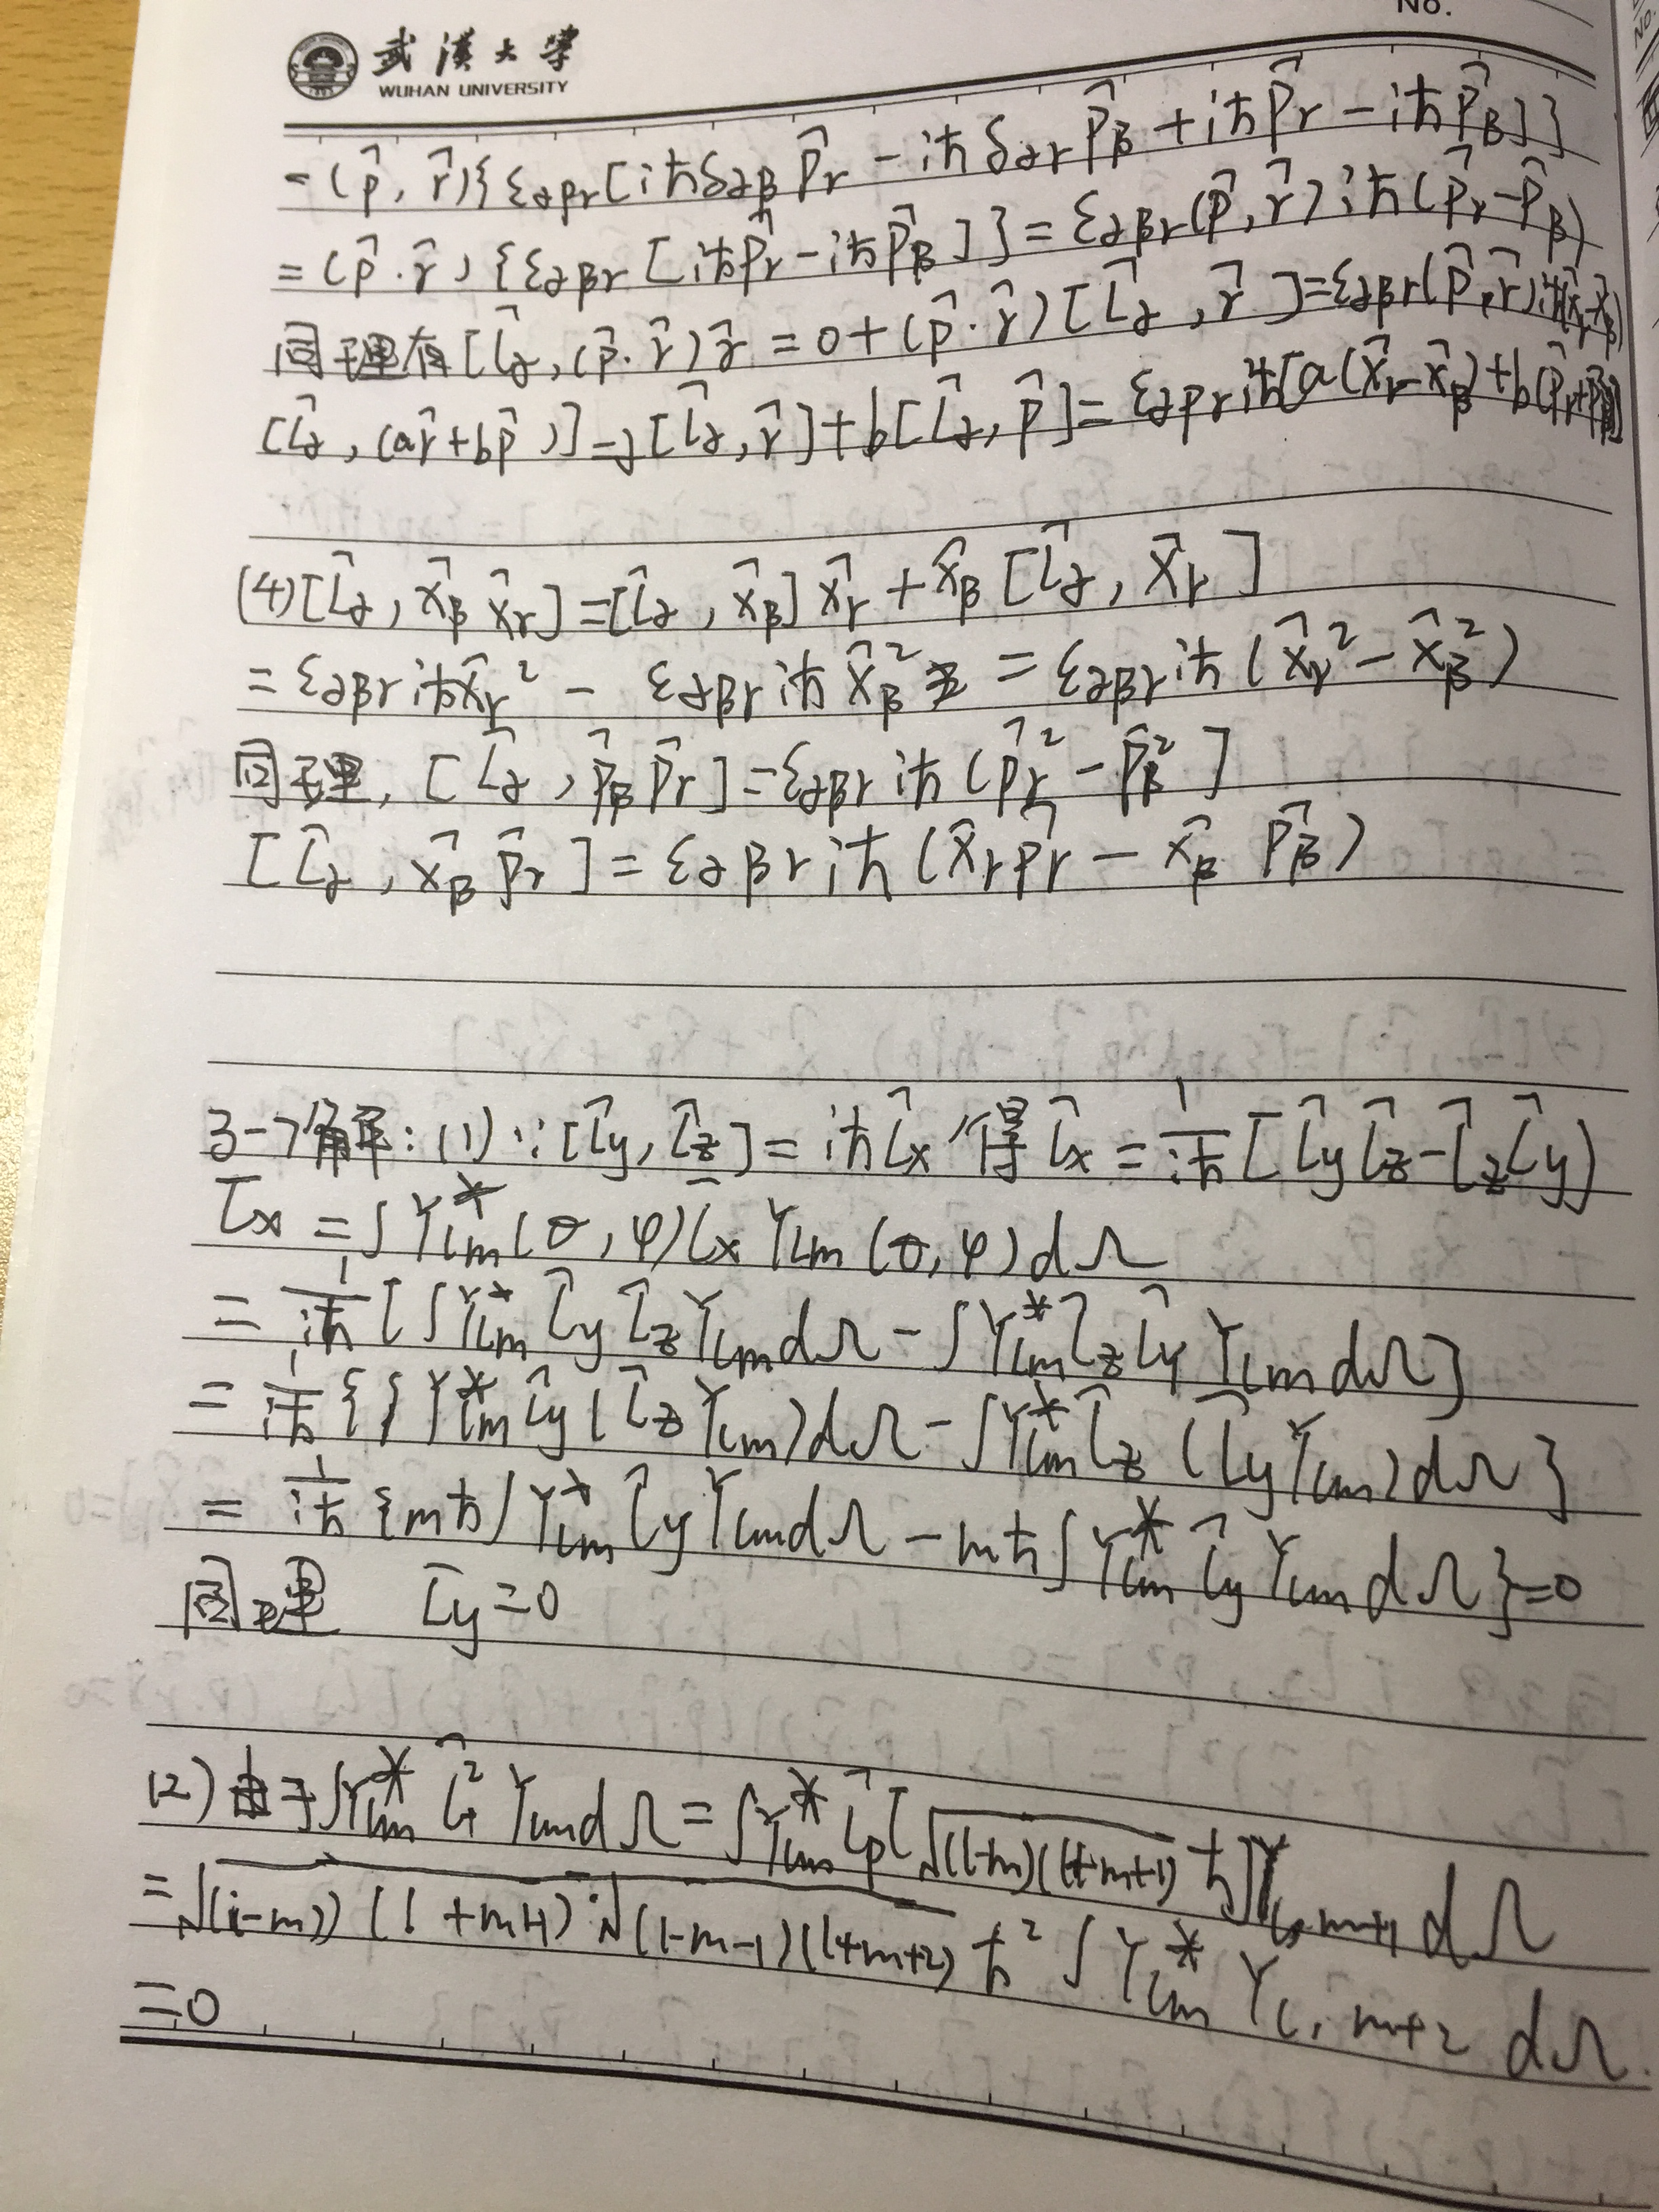 No.
武漢大學
WUHAN UNIVERSITY
= (p̂, r̂){ε_αβγ[iħδ_αβ p̂_γ - iħδ_αγ p̂_β + iħp̂_γ - iħp̂_β]}
= (p̂·r̂){ε_αβγ[iħp̂_γ - iħp̂_β]} = ε_αβγ(p̂, r̂)iħ(p̂_γ - p̂_β)
同理有[L̂_α, (p̂·r̂)r̂ = 0 + (p̂·r̂)[L̂_α, r̂] = ε_αβγ(p̂, r̂)iħ(x̂_γ - x̂_β)
[L̂_α, (ar̂ + bp̂)] = a[L̂_α, r̂] + b[L̂_α, p̂] = ε_αβγ iħ[a(x̂_γ - x̂_β) + b(p̂_γ +
(4)[L̂_α, x̂_β x̂_γ] = [L̂_α, x̂_β]x̂_γ + x̂_β[L̂_α, x̂_γ]
= ε_αβγ iħx̂_γ² - ε_αβγ iħx̂_β² = ε_αβγ iħ(x̂_γ² - x̂_β²)
同理, [L̂_α, p̂_β p̂_γ] = ε_αβγ iħ(p̂_γ² - p̂_β²]
[L̂_α, x̂_β p̂_γ] = ε_αβγ iħ(x̂_γ p̂_γ - x̂_β p̂_β)
3-7解:(1)∵[L̂y, L̂z] = iħL̂x 得 L̂x = 1/iħ [L̂yL̂z - L̂zL̂y)
L̄x = ∫Y*lm(θ,φ)L̂x Ylm(θ,φ)dΩ
= 1/iħ [∫Y*lm L̂y L̂z Ylm dΩ - ∫Y*lm L̂z L̂y Ylm dΩ]
= 1/iħ {∫Y*lm L̂y(L̂z Ylm)dΩ - ∫Y*lm L̂z(L̂y Ylm)dΩ}
= 1/iħ {mħ∫Y*lm L̂y Ylm dΩ - mħ∫Y*lm L̂y Ylm dΩ}=0
同理 L̄y=0
(2)由于∫Y*lm L̂₊² Ylm dΩ = ∫Y*lm L̂₊[√(l-m)(l+m+1) ħ]Yl,m+1 dΩ
= √(l-m)(l+m+1)·√(l-m-1)(l+m+2) ħ² ∫Y*lm Yl,m+2 dΩ.
=0